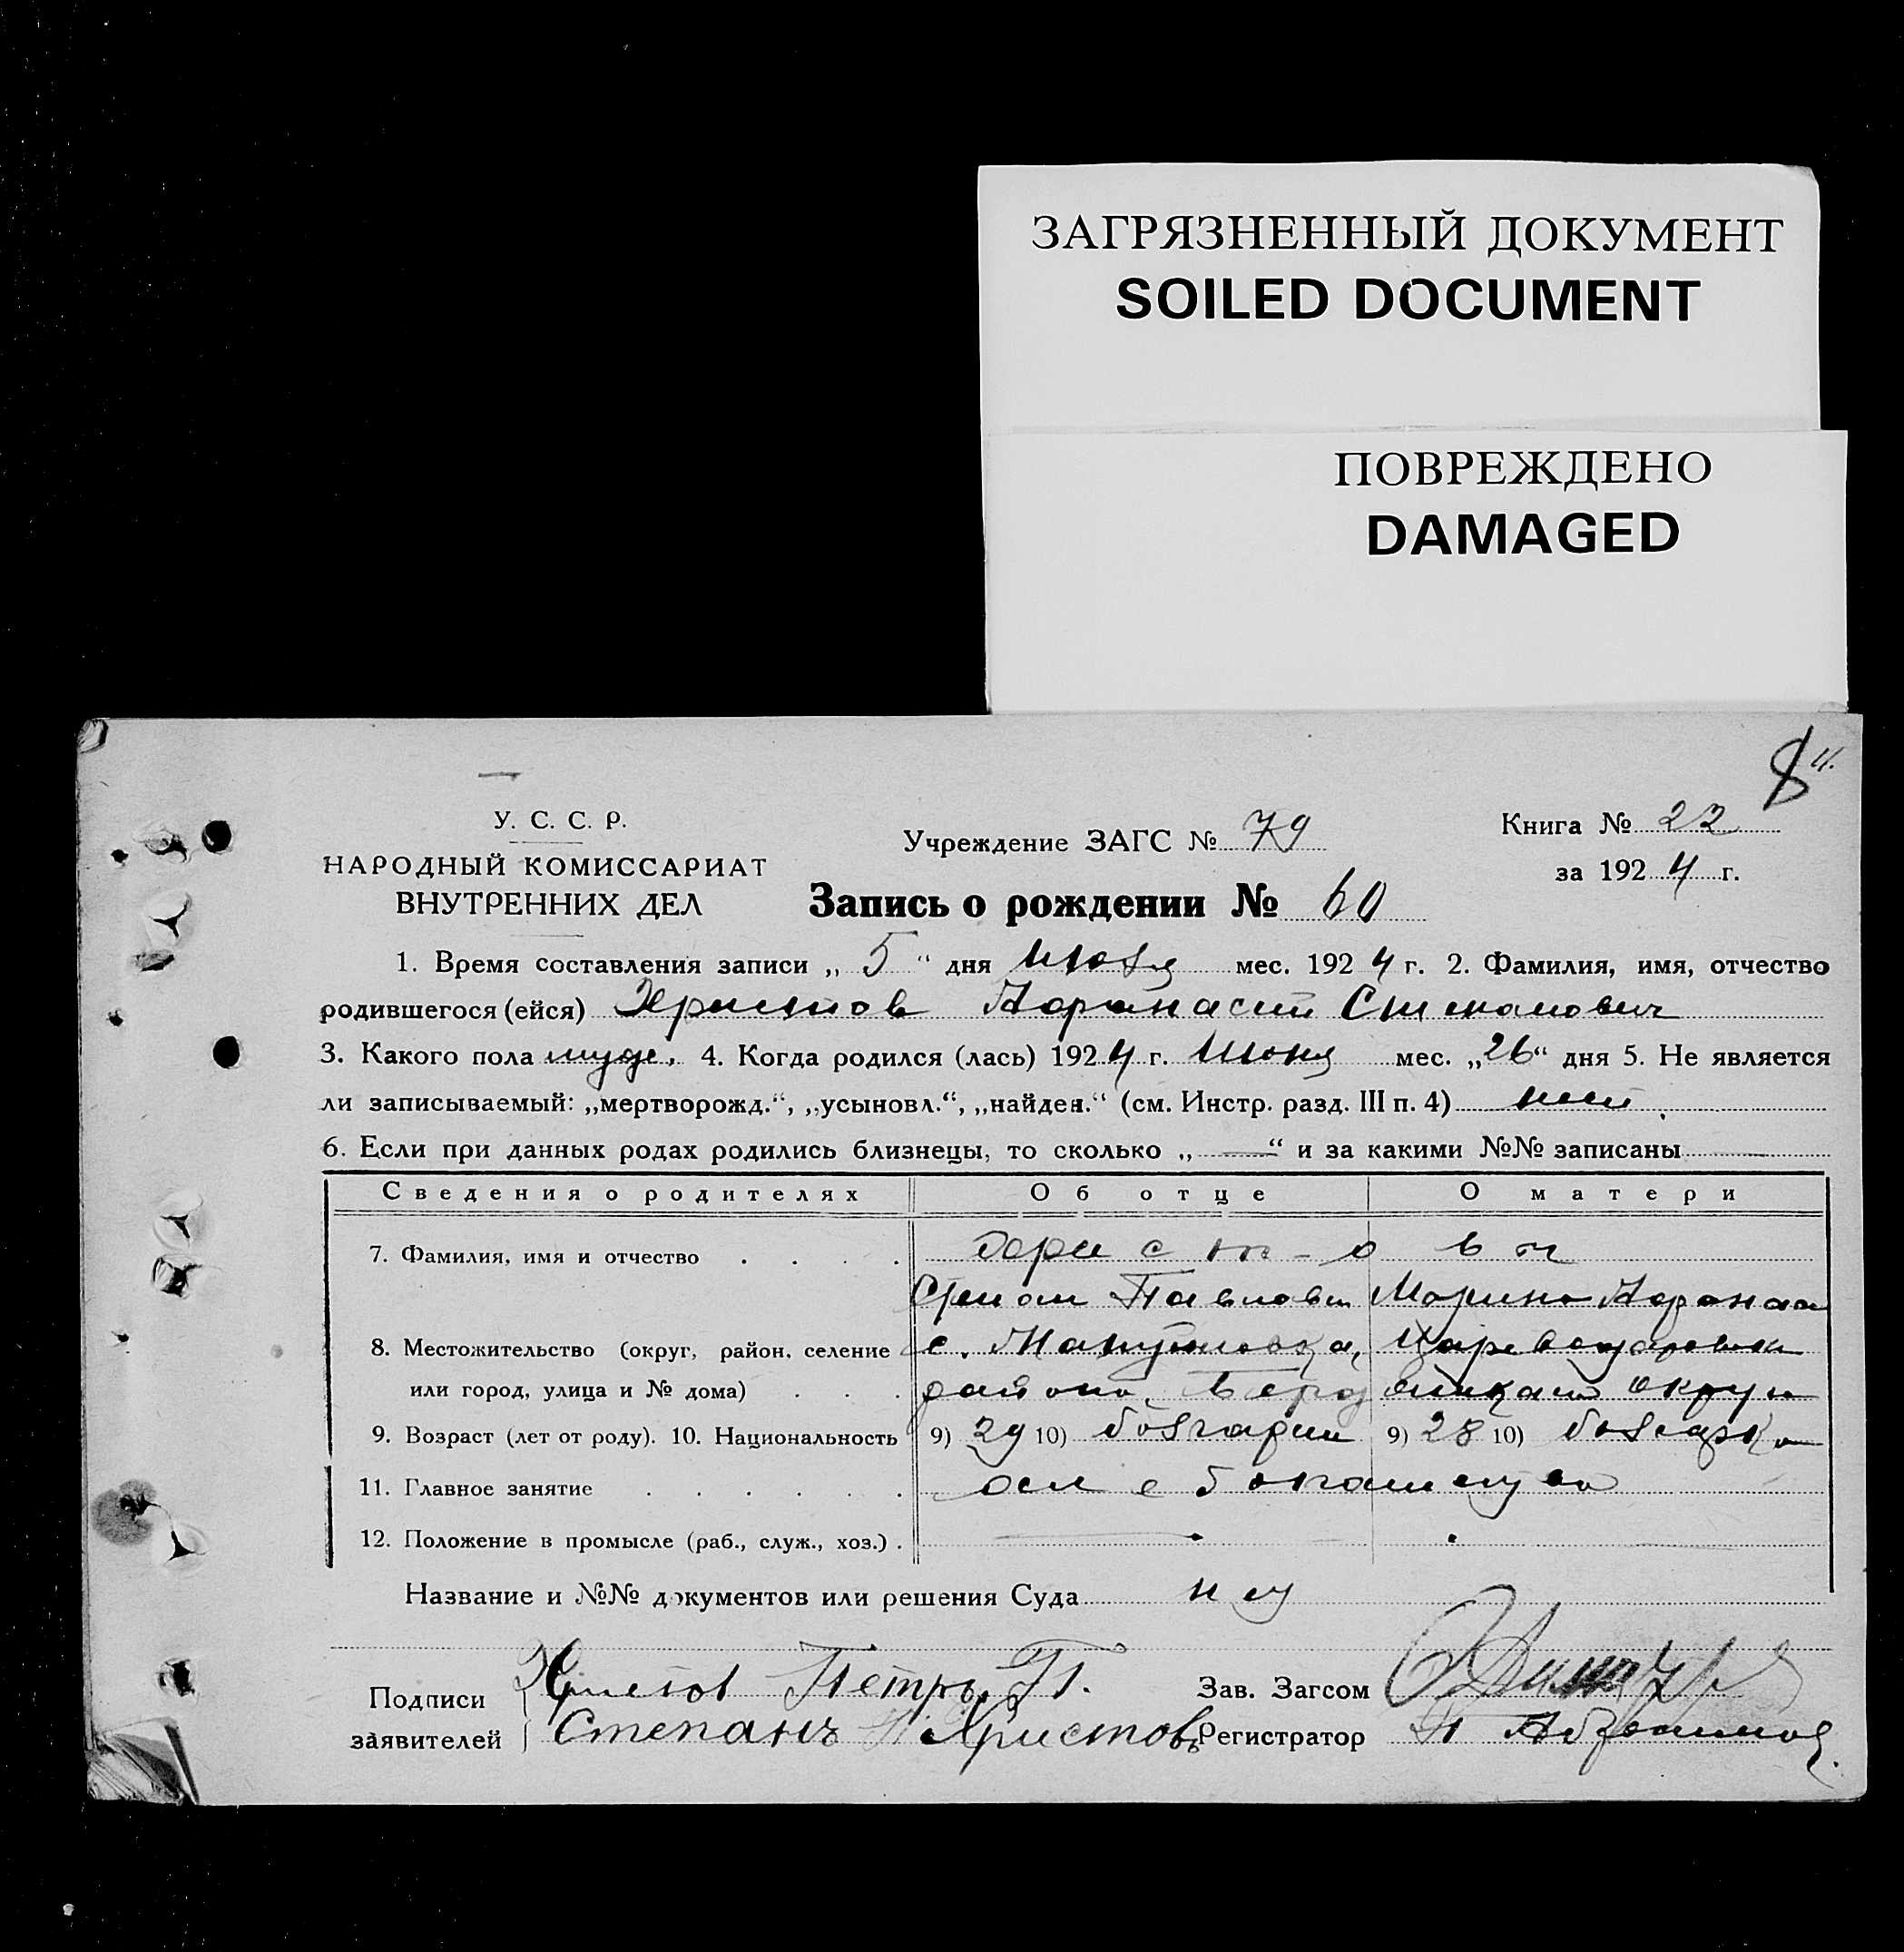 ЗАГРЯЗНЕННЫЙ ДОКУМЕНТ
SOILED DOCUMENT
ПОВРЕЖДЕНО
DAMAGED
8
У. С. С. Р.
НАРОДНЫЙ КОМИССАРИАТ
ВНУТРЕННИХ ДЕЛ
Учреждение ЗАГС № 79
Книга № 22
за 1924 г.
Запись о рождении № 60
1. Время составления записи „ 5 “ дня Июля мес. 1924 г. 2. Фамилия, имя, отчество
родившегося (ейся) Христов Афанасий Степанович
3. Какого пола муж. 4. Когда родился (лась) 1924 г. Июня мес. „26“ дня 5. Не является
ли записываемый: „мертворожд.“, „усыновл.“, „найден.“ (см. Инстр. разд. III п. 4) нет
6. Если при данных родах родились близнецы, то сколько „ — “ и за какими №№ записаны —
Сведения о родителях Об отце О матери
7. Фамилия, имя и отчество . . . . Христовы
Степан Павлович Марина Афанас
8. Местожительство (округ, район, селение с.
или город, улица и № дома) . . . района округи
9. Возраст (лет от роду). 10. Национальность 9) 29 10) болгарин 9) 28 10) болгарка
11. Главное занятие . . . . . .
12. Положение в промысле (раб., служ., хоз.) .
Название и №№ документов или решения Суда нет
Подписи Христов Петръ П. Зав. Загсом
заявителей Степанъ П Христовъ Регистратор